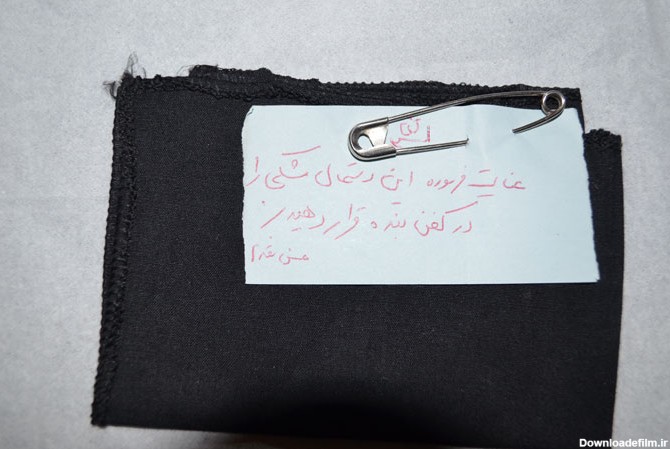 عنایت فرموده این دستمال مشکی را
در کفن بنده قرار دهید
Downloadefilm.ir